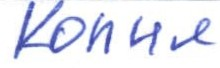 Копия